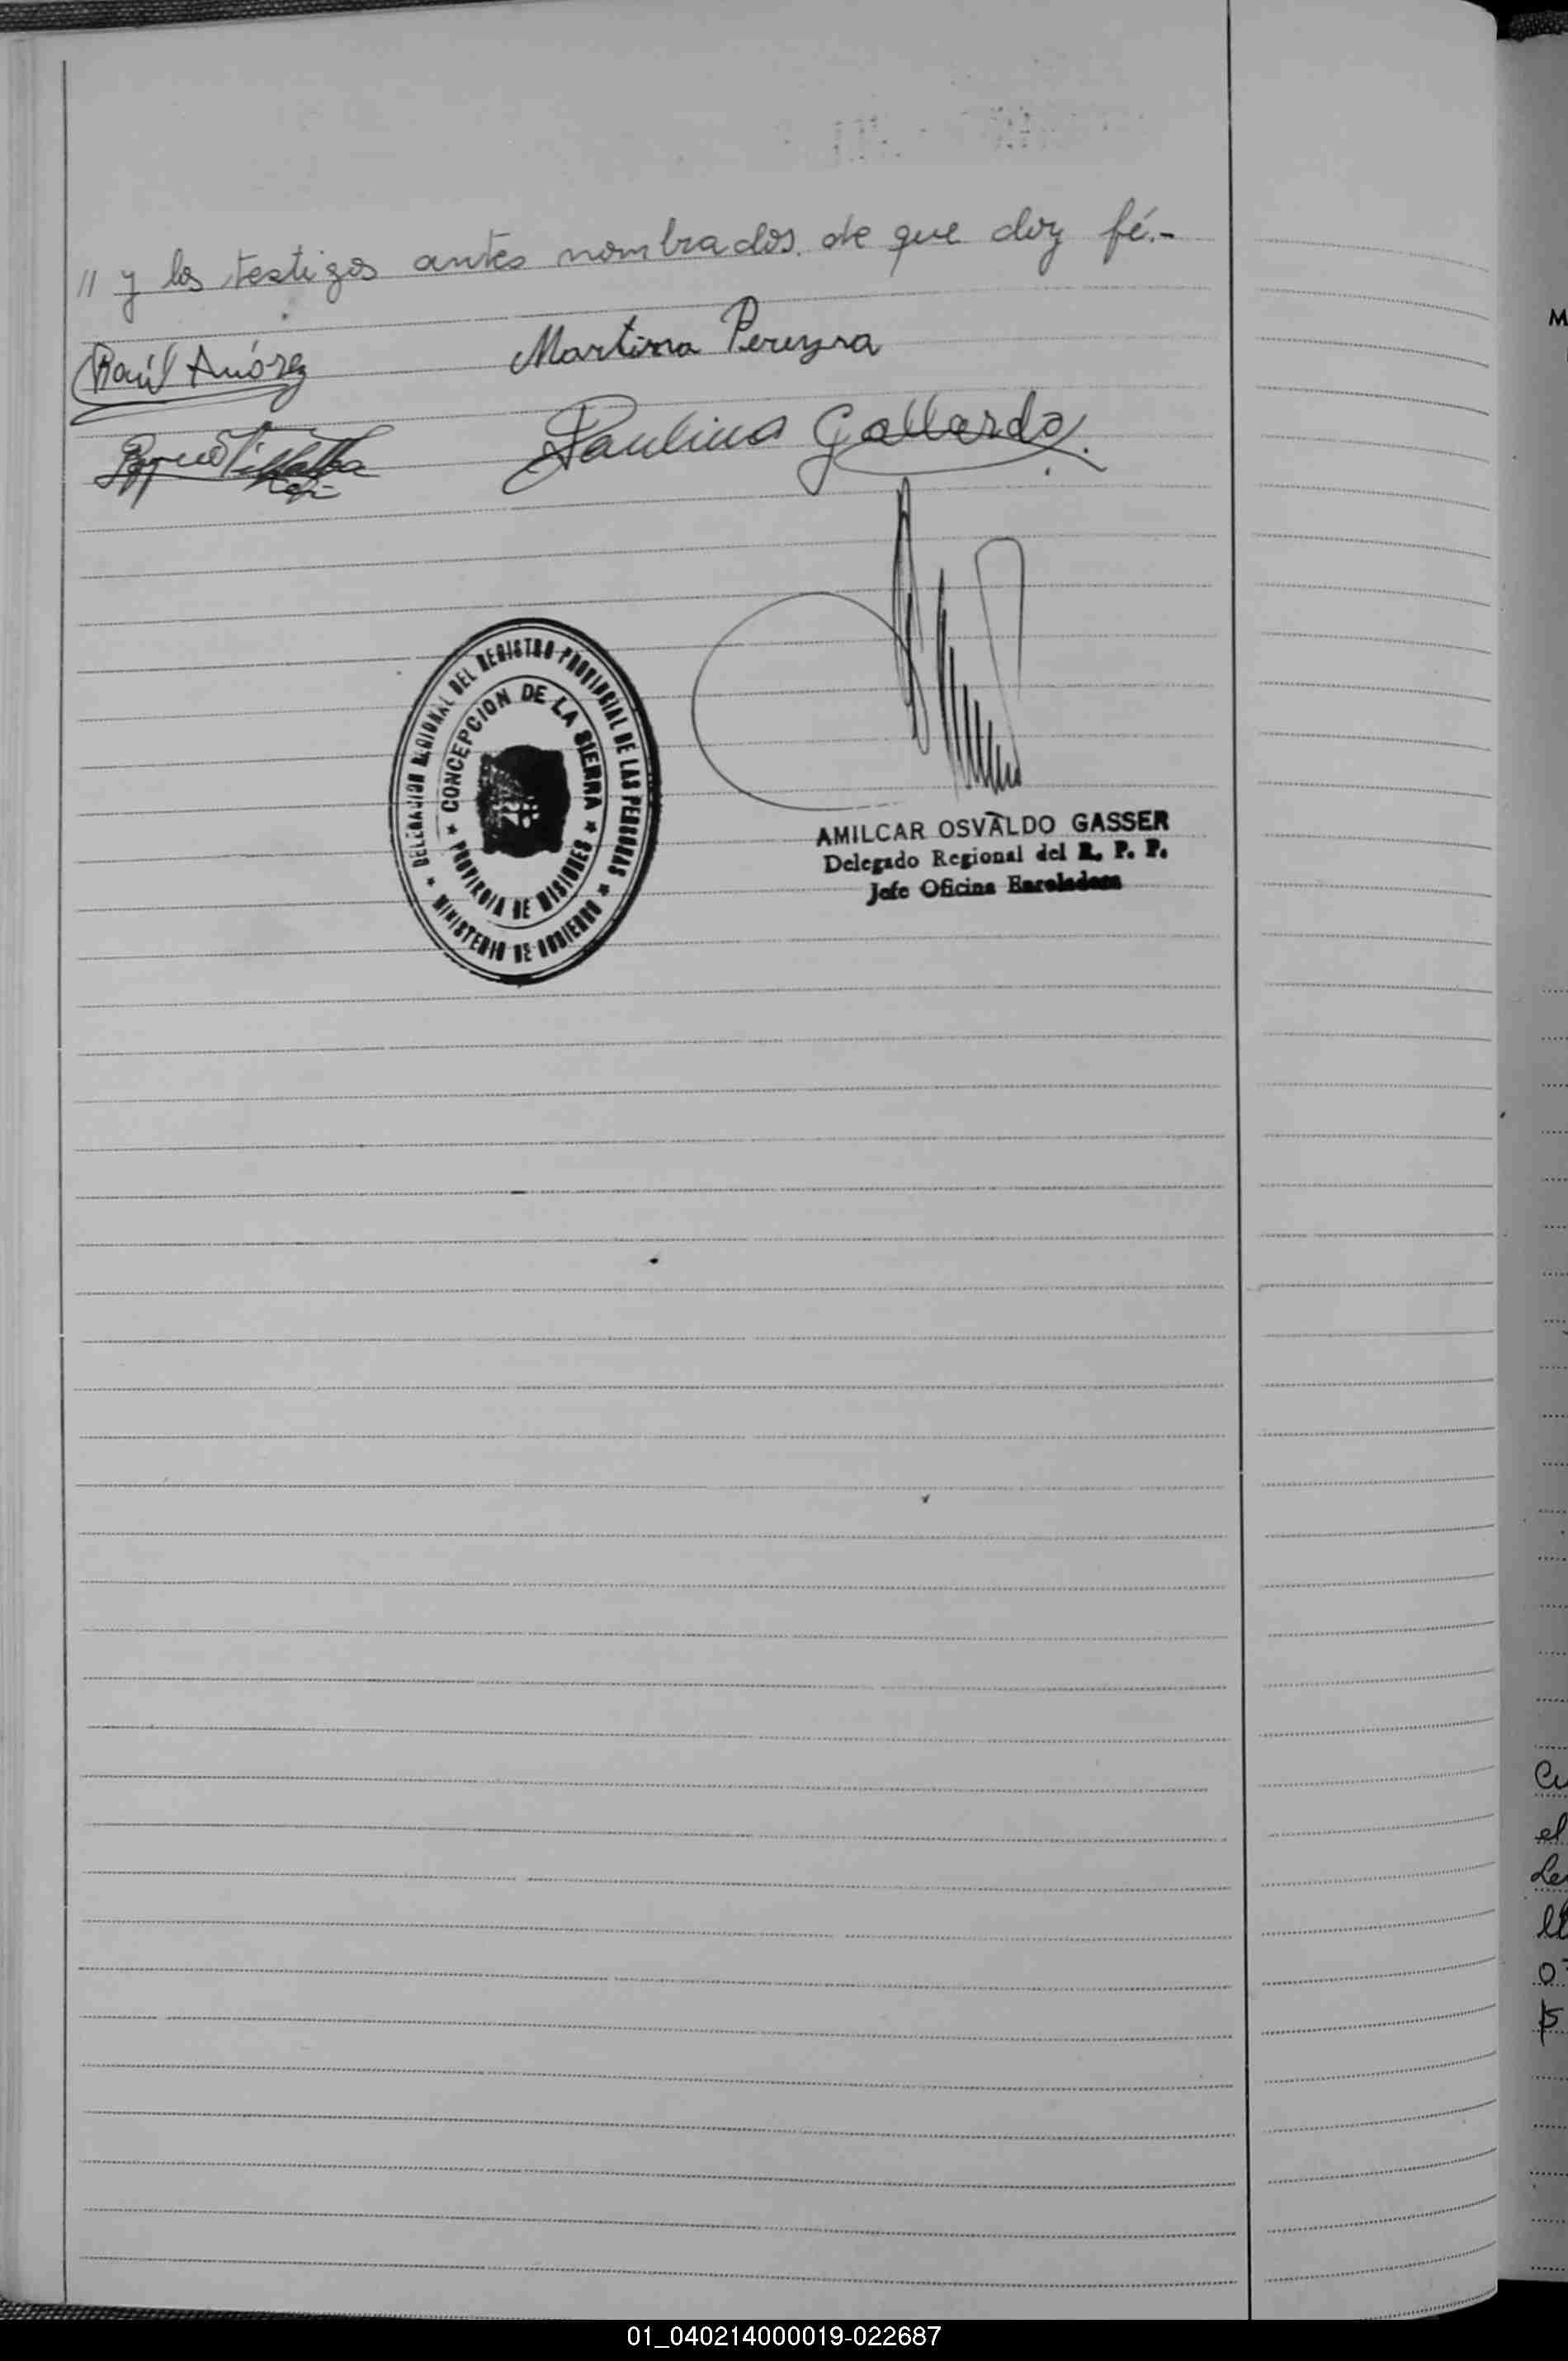 // y los testigos antes nombrados. de que doy fé.-
Raúl
Martina Pereyra
Villalba
Paulina Gallardo
DELEGACION REGIONAL DEL REGISTRO PROVINCIAL DE LAS PERSONAS
★ MINISTERIO DE GOBIERNO ★
★ CONCEPCION DE LA SIERRA ★
PROVINCIA DE MISIONES
AMILCAR OSVALDO GASSER
Delegado Regional del R. P. P.
Jefe Oficina Enroladora
M
Cu
el
Le
ll
01_040214000019-022687